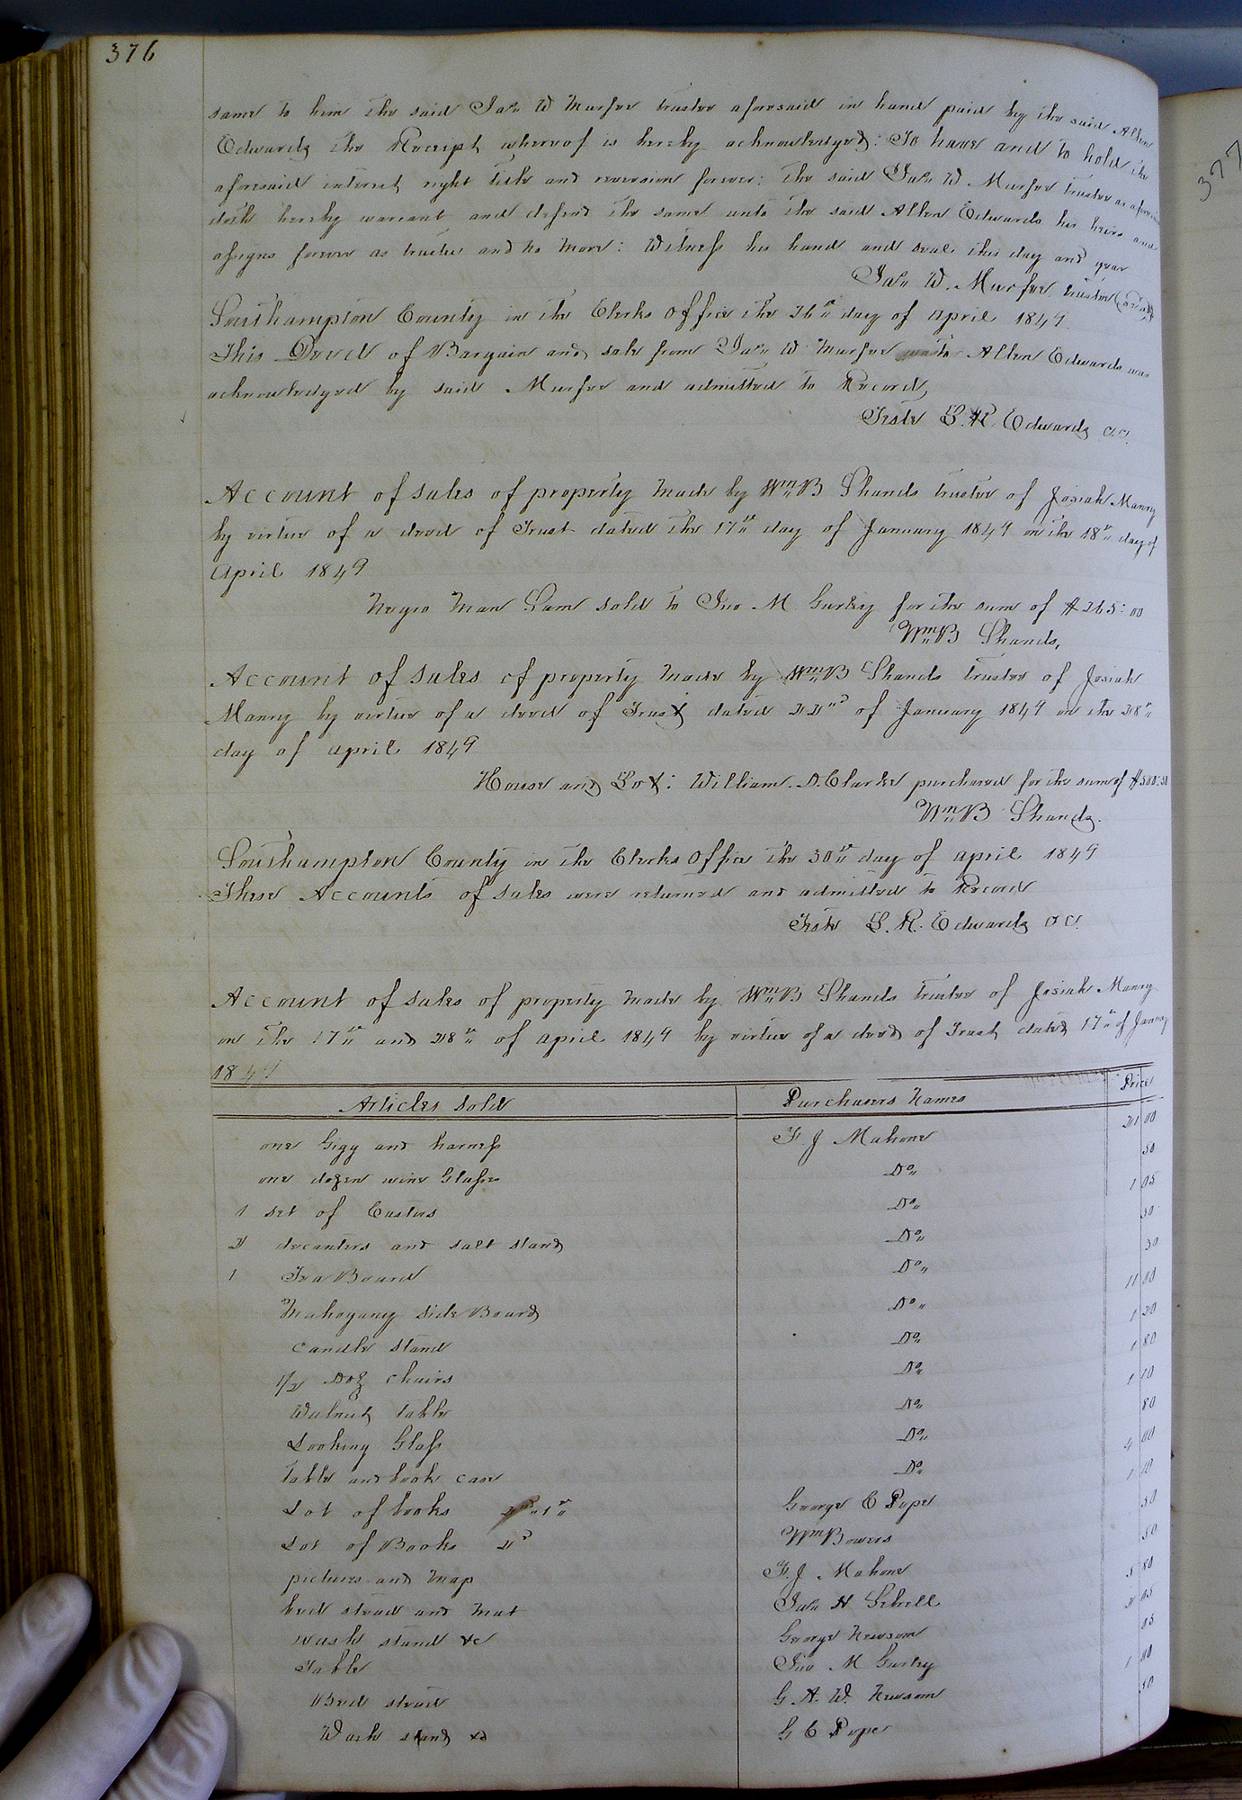 376
same to him the said Jas. W Murfee trustee aforesaid in hand paid by the said Allen
Edwards the Receipt whereof is hereby acknowledged: To have and to hold the
aforesaid interest right title and reversion forever: The said Jas. W. Murfee trustee as aforesaid
doth hereby warrant and defend the same unto the said Allen Edwards his heirs and
assigns forever as trustee and no more: Witness his hand and seal this day and year
Jas. W. Murfee trustee (seal)
Southampton County in the Clerks office the 26th day of april 1849
This Deed of Bargain and sale from Jas. W Murfee unto Allen Edwards was
acknowledged by said Murfee and admitted to Record,
Teste L. R. Edwards CC.
Account of sales of property made by Wm B Shands trustee of Josiah Manry
by virtue of a deed of Trust dated the 17th day of January 1849 on the 18th day of
April 1849
Negro man Sam sold to Jno M Gurley for the sum of $265:00
Wm B Shands,
Account of sales of property made by Wm B Shands trustee of Josiah
Manry by virtue of a deed of Trust dated 22nd of January 1849 on the 28th
day of april 1849
House and Lot: William D. Clarke purchased for the sum of
Wm B Shands.
Southampton County in the Clerks Office the 30th day of april 1849
These Accounts of sales were returned and admitted to Record
Teste L. R. Edwards CC.
Account of sales of property made by Wm B Shands trustee of Josiah Manry
on the 17th and 28th of april 1849 by virtue of a deed of Trust dated 17th of January
1849
Articles sold Purchasers Names Price
one Gigy and harness F J Mahone 21 00
one dozen wine Glasses Do 50
1 set of Castors Do 1 05
2 decanters and salt stand Do 30
1 Tea Board Do 30
Mahogany side Board Do 11 00
candle stand Do 1 20
1/2 Doz chairs Do 1 80
Walnut table Do 1 10
Looking Glass Do 80
table and book case Do 4 00
Lot of books 1st George C Pope 1 10
Lot of Books 2d Wm Bowers 50
pictures and map F. J. Mahone 50
bed stead and mat Jas. H Sebrell 5 80
wash stand &c George Newsom 05
Table Jno M Gurley 05
Bed stead G. A. W. Newsom 1 00
Wash stand &c G C Pope 50
377